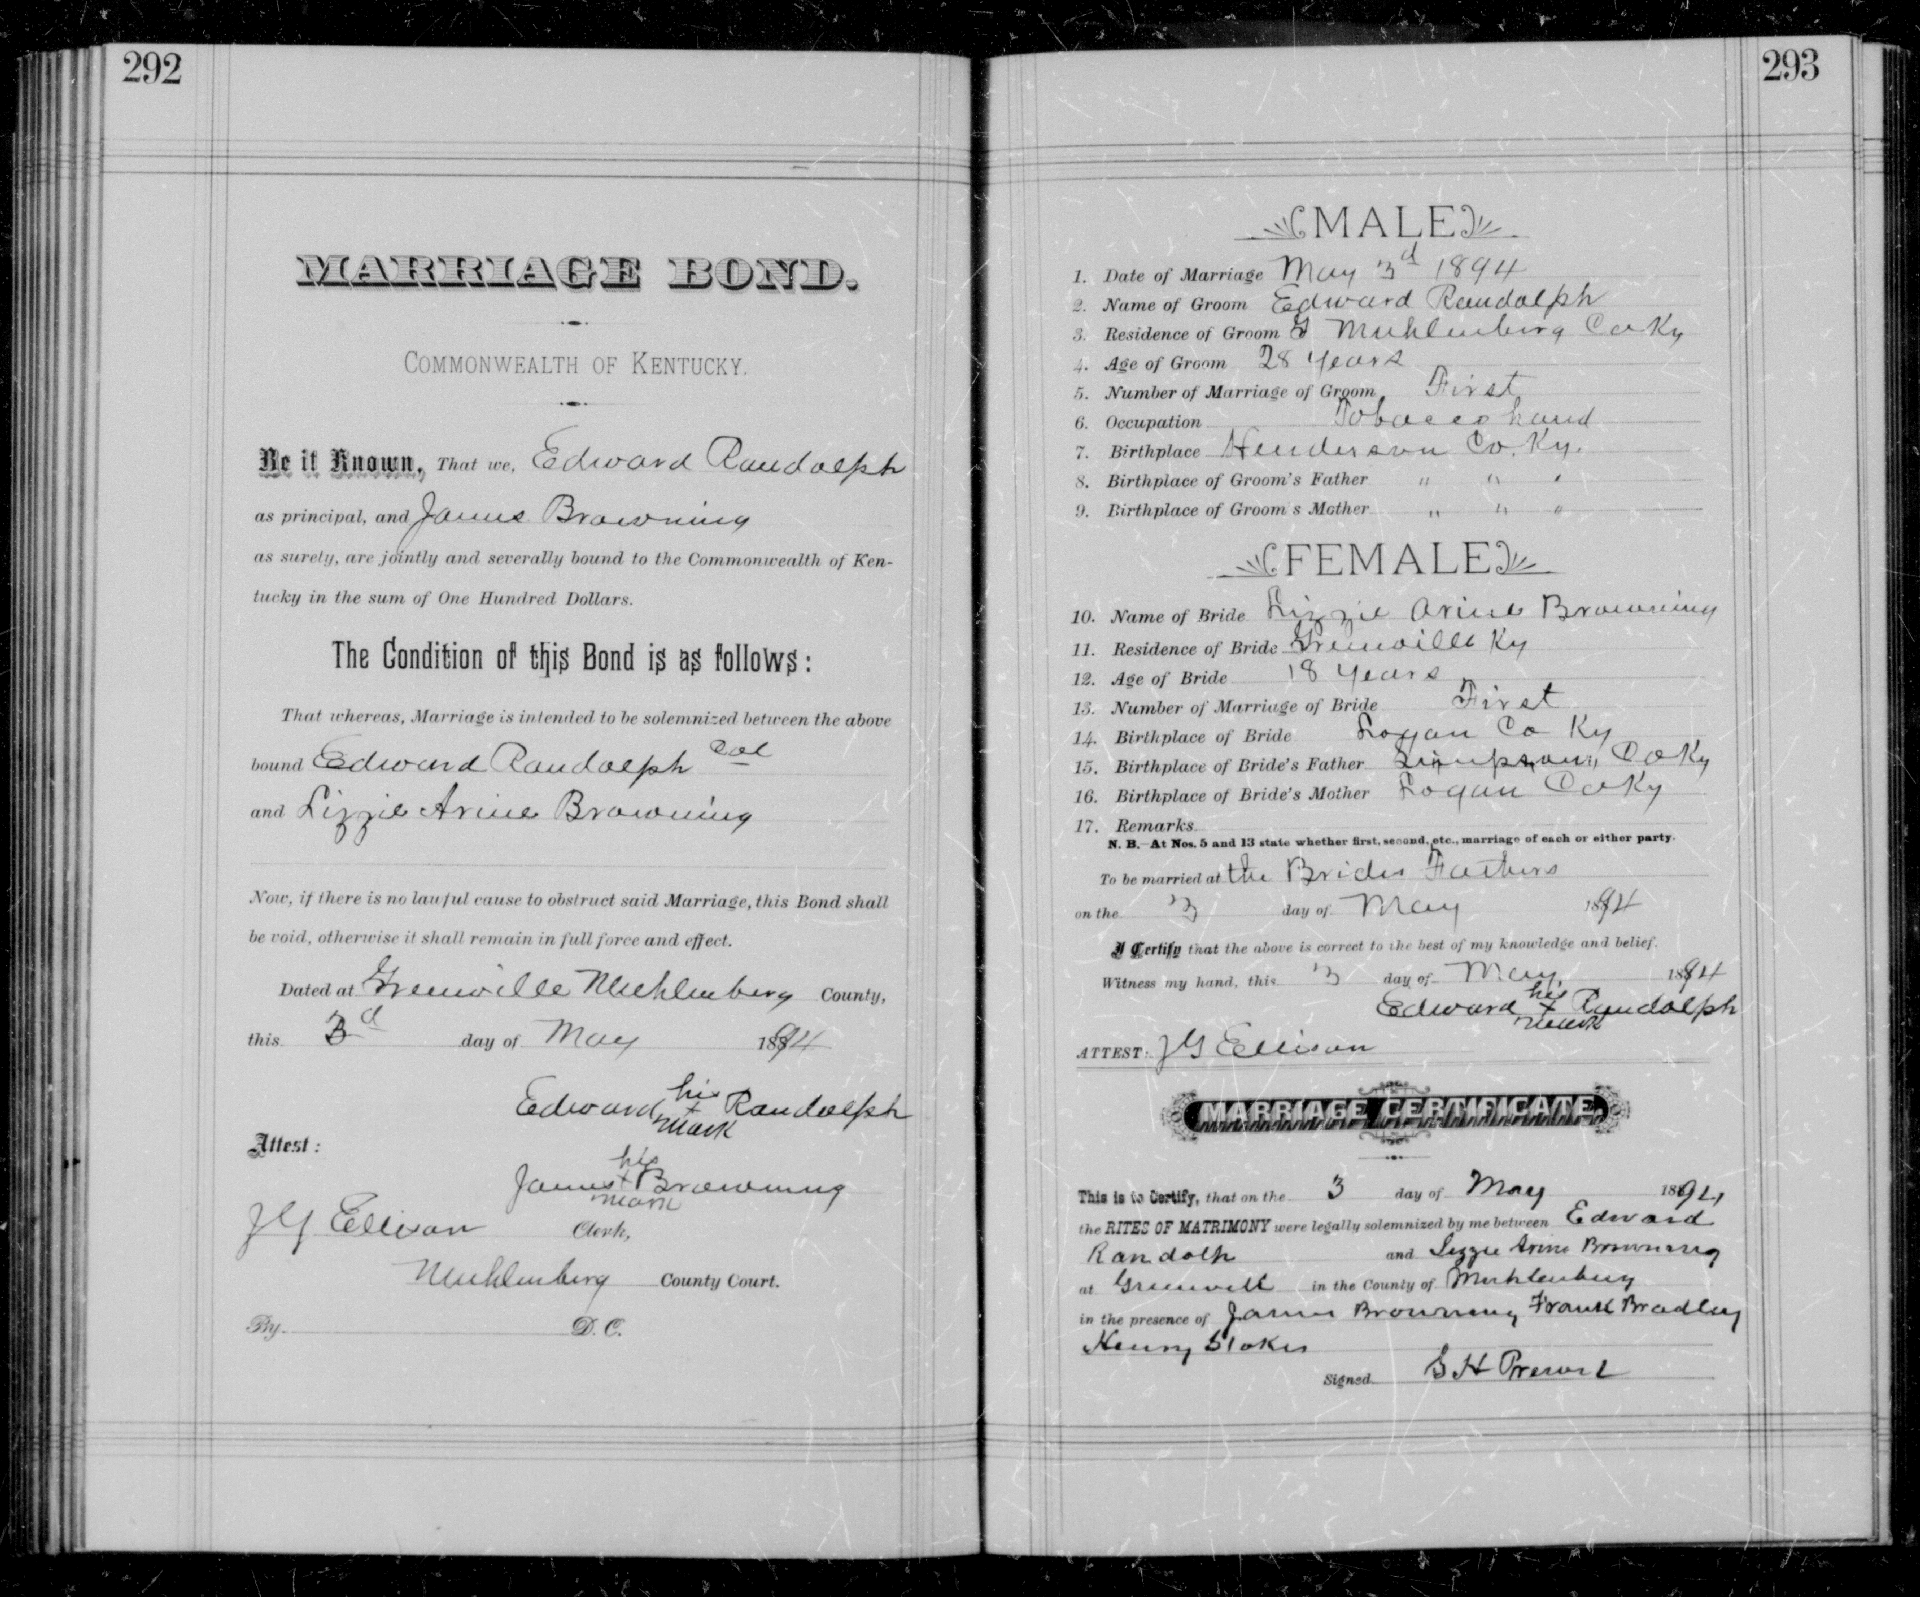 292
MARRIAGE BOND.
COMMONWEALTH OF KENTUCKY.
Be it Known, That we, Edward Randolph
as principal, and James Browning
as surety, are jointly and severally bound to the Commonwealth of Ken-
tucky in the sum of One Hundred Dollars.
The Condition of this Bond is as follows:
That whereas, Marriage is intended to be solemnized between the above
bound Edward Randolph Col
and Lizzie Arine Browning
Now, if there is no lawful cause to obstruct said Marriage, this Bond shall
be void, otherwise it shall remain in full force and effect.
Dated at Greenville Muhlenberg County,
this 3d day of May 1894
Edward his x mark Randolph
Attest:
James his x mark Browning
J G Ellison Clerk,
Muhlenberg County Court.
By D. C.
293
MALE
1. Date of Marriage May 3d 1894
2. Name of Groom Edward Randolph
3. Residence of Groom Muhlenberg Co Ky
4. Age of Groom 28 years
5. Number of Marriage of Groom First
6. Occupation Tobacco hand
7. Birthplace Henderson Co. Ky.
8. Birthplace of Groom's Father " " "
9. Birthplace of Groom's Mother " " "
FEMALE
10. Name of Bride Lizzie Arine Browning
11. Residence of Bride Greenville Ky
12. Age of Bride 18 years
13. Number of Marriage of Bride First
14. Birthplace of Bride Logan Co Ky
15. Birthplace of Bride's Father Simpson Co Ky
16. Birthplace of Bride's Mother Logan Co Ky
17. Remarks
N. B.—At Nos. 5 and 13 state whether first, second, etc., marriage of each or either party.
To be married at the Brides Fathers
on the 3 day of May 1894
I Certify that the above is correct to the best of my knowledge and belief.
Witness my hand, this 3 day of May, 1894
Edward his x mark Randolph
ATTEST: J G Ellison
MARRIAGE CERTIFICATE
This is to Certify, that on the 3 day of May 1894
the RITES OF MATRIMONY were legally solemnized by me between Edward
Randolh and Lizzie Arine Browning
at Greenvill in the County of Muhlenburg
in the presence of James Browning Frank Bradley
Henry Stokes
Signed H